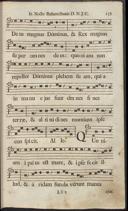 In Nocte Resurrectionis D. N. J. C. 157
De us magnus Dominus, & Rex magnus
su per om nes de os: quo ni am non
repellet Dominus plebem su am, qui a
in ma nu e jus sunt om nes fi nes
terræ, & al ti tu di nes montium ipse
con spi cit. Al le. Quo ni
am i psi us est ma re, & ipse fe cit il-
lud, & a ridam funda verunt manus